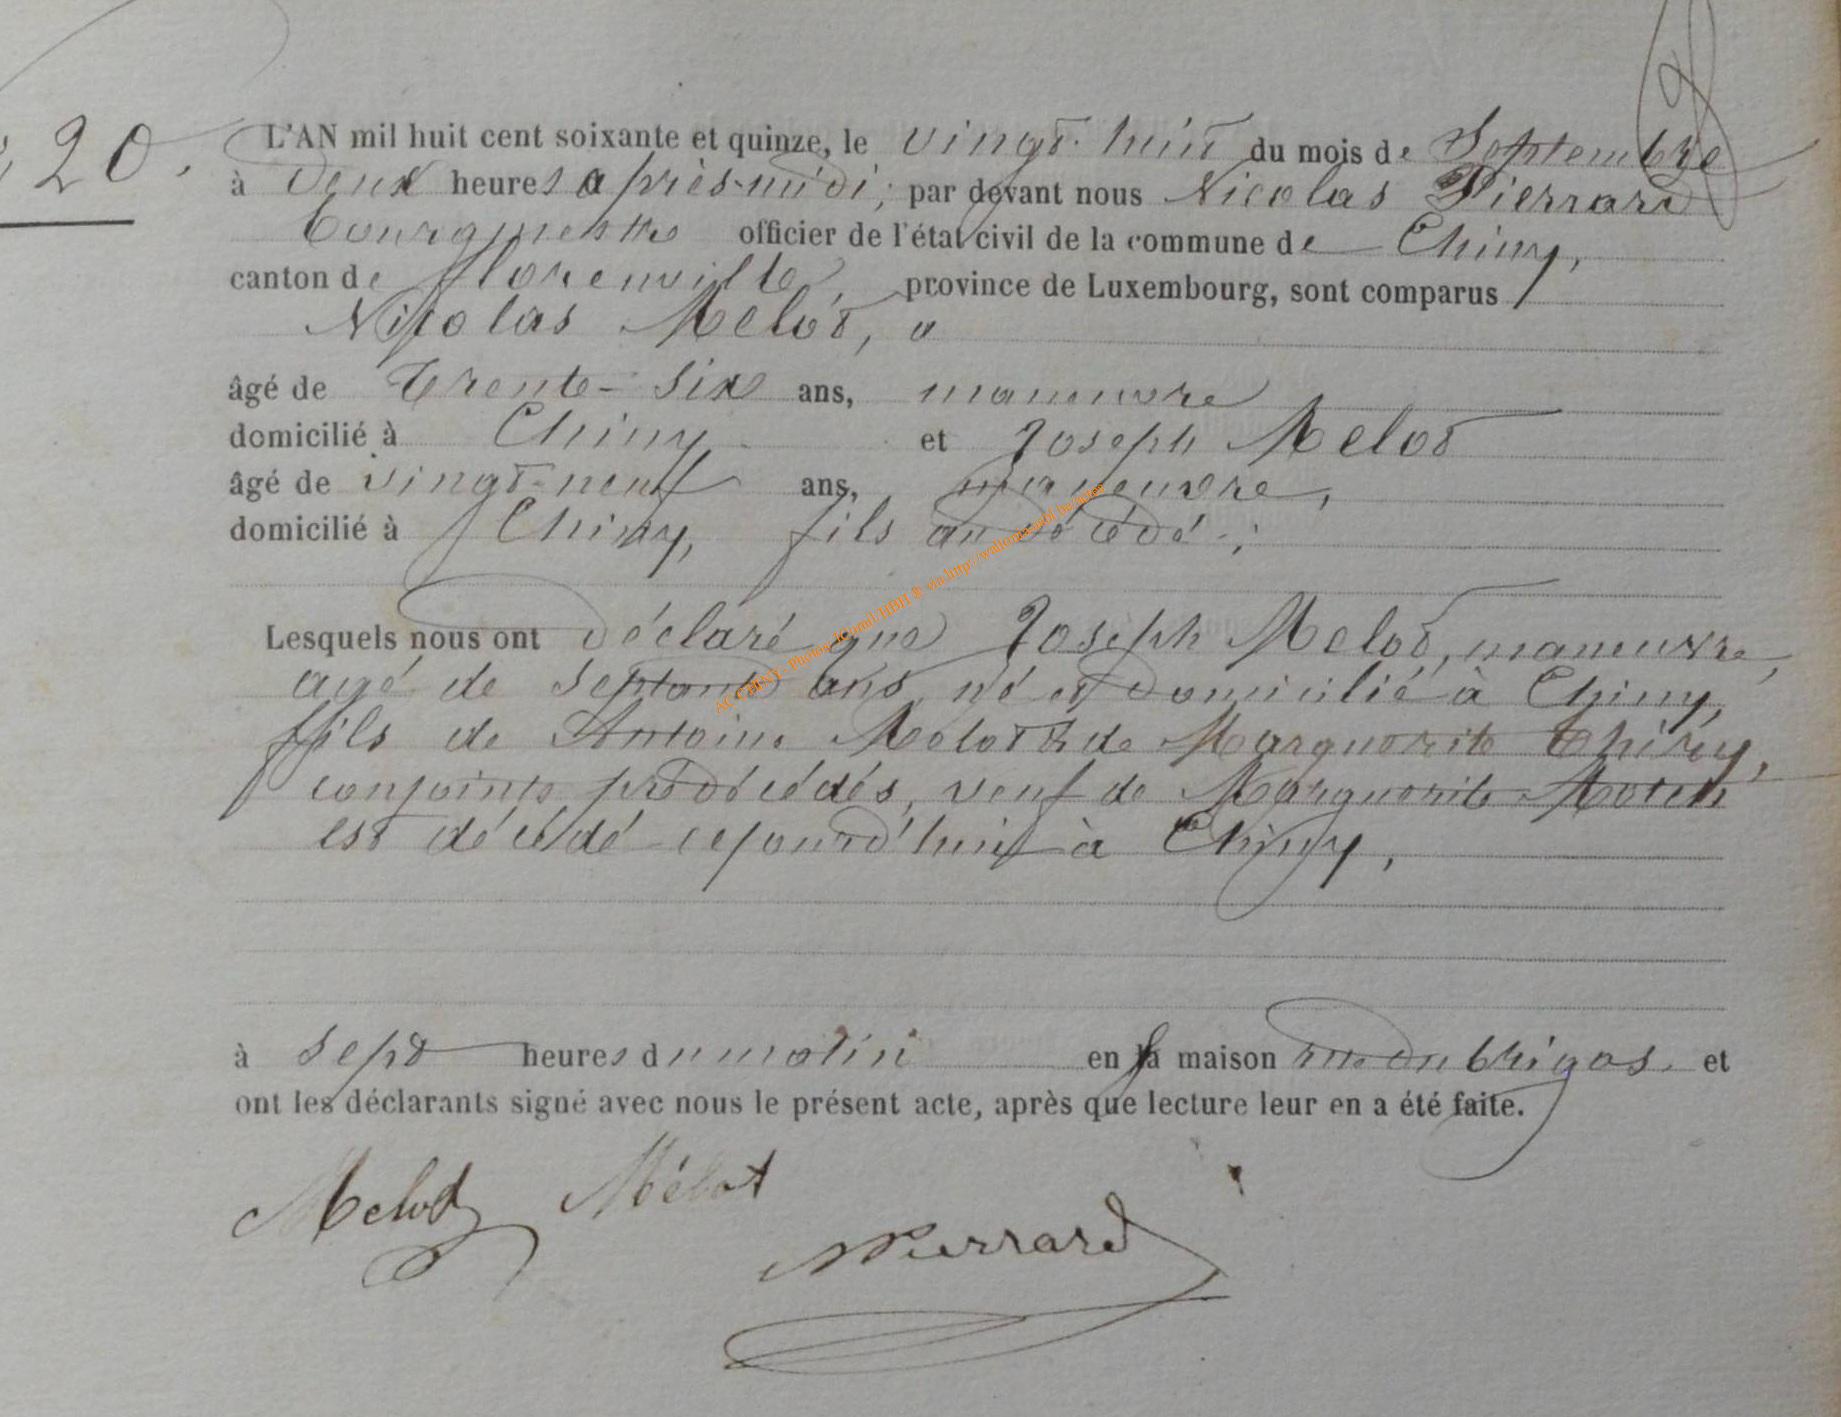 20.
L'AN mil huit cent soixante et quinze, le vingt-huit du mois de Septembre
à deux heures après-midi, par devant nous Nicolas Pierrard
bourgmestre officier de l'état civil de la commune de Chiny,
canton de Florenville, province de Luxembourg, sont comparus
Nicolas Melot,
âgé de trente-six ans, maneuvre
domicilié à Chiny et Joseph Melot
âgé de vingt-neuf ans, maneuvre,
domicilié à Chiny, fils au décédé;
Lesquels nous ont déclaré que Joseph Melot, maneuvre,
agé de septante ans, né et domicilié à Chiny,
fils de Antoine Melot & de Marguerite Thiéry,
conjoints prédécédés, veuf de Marguerite
est décédé cejourd'hui à Chiny,
à sept heures du matin en sa maison rue du et
ont les déclarants signé avec nous le présent acte, après que lecture leur en a été faite.
Melot Mélot
NPierrard
AC CHINY - Photos JComil/HBH ® via http://wallonia-asbl.be/actes